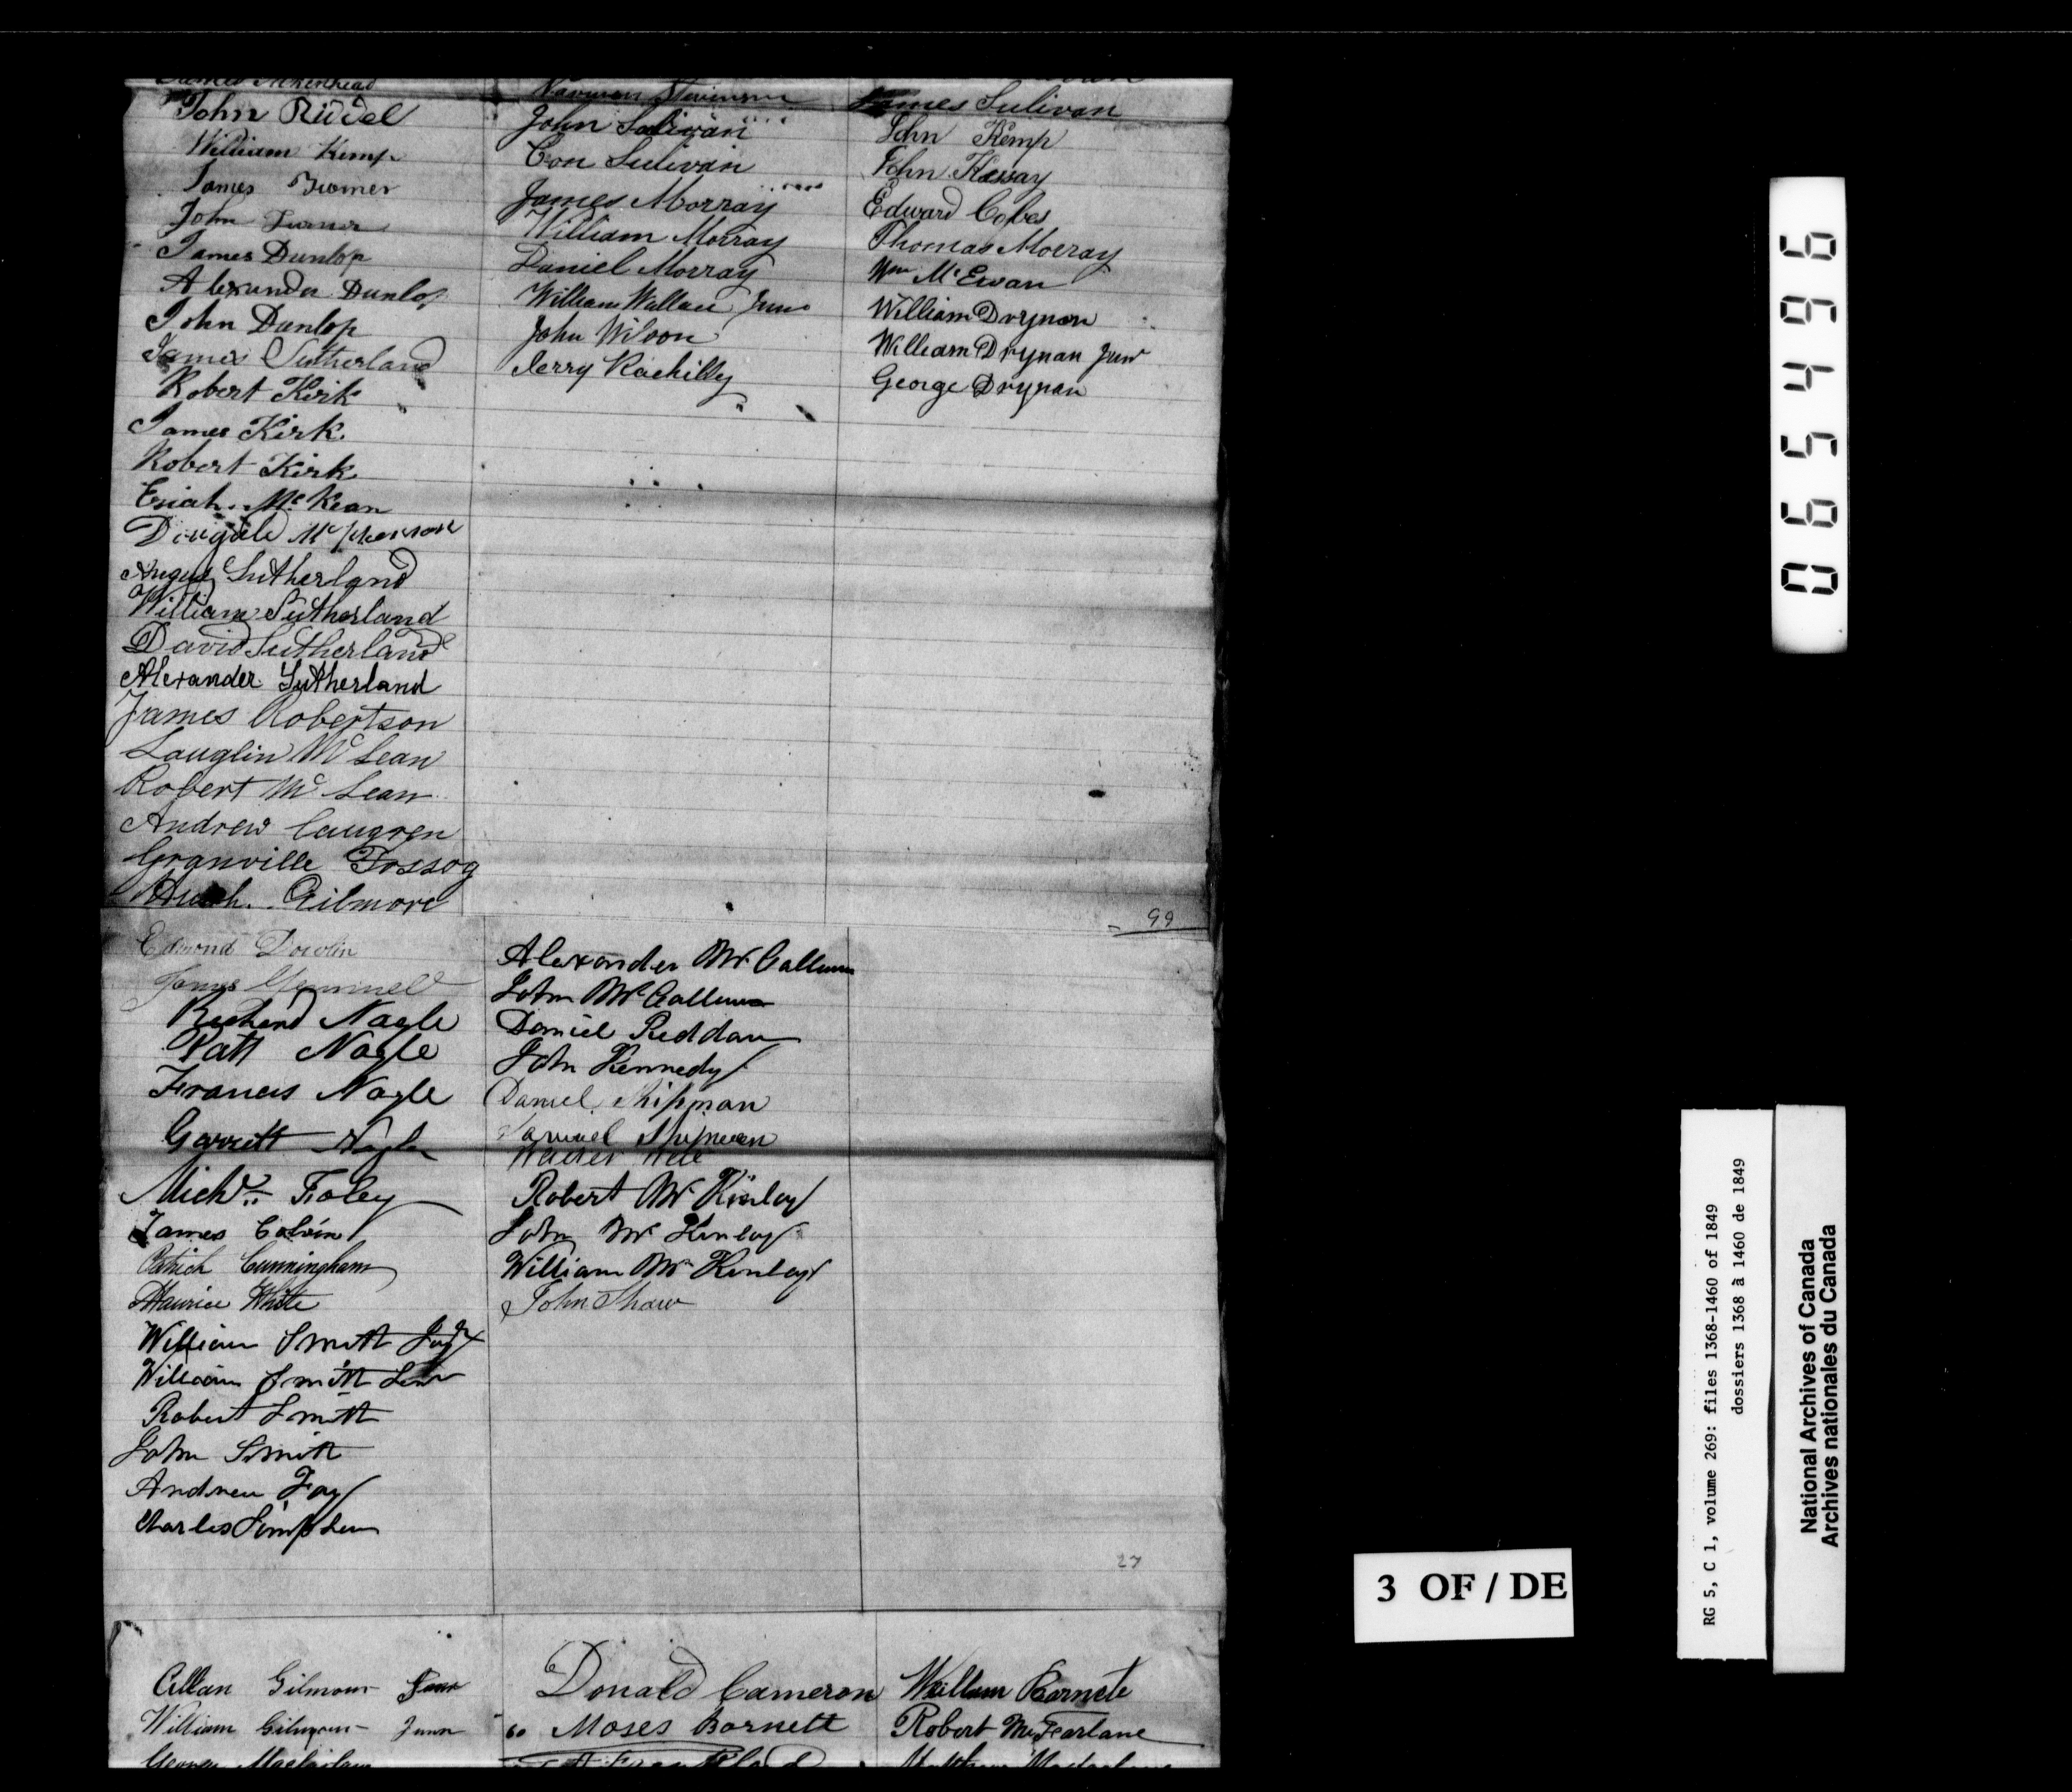 John Ridel
William Kemp
James Turner
John Turner
James Dunlop
Alexander Dunlop
John Dunlop
James Sutherland
Robert Kirk
James Kirk
Robert Kirk
McKean
Dougald McPherson
Angus Sutherland
William Sutherland
David Sutherland
Alexander Sutherland
James Robertson
Lauglin McLean
Robert McLean
Andrew Caugren
Granville Fossog
Hugh Gilmore
Stevenson
John Sulivan
Con Sulivan
James Morray
William Morray
Daniel Morray
William Wallace Junr
John Wilson
Jerry Rachilly
James Sulivan
John Kemp
John
Edward Cobes
Thomas Morray
Wm McEwan
William Drynan
William Drynan Junr
George Drynan
99
Edmond Dowlin
James Gemmel
Richard Nagle
Patt Nagle
Francis Nagle
Garrett Nagle
Michl Foley
James Colvin
Patrick Cunningham
Maurice White
William Smith
William Smith Senr
Robert Smith
John Smith
Andrew Fay
Charles Simpson
Alexander McCallum
John McCallum
Daniel Reddan
John Kennedy
Daniel Shipman
Samuel Shipman
Robert McKinley
John McKinley
William McKinley
John Shaw
27
Allan Gilmour Senr
William Gilmour Junr
George Macfarlane
Donald Cameron
60 Moses Barnett
William Barnete
Robert McFarlane
Matthew Macfarlane
065496
3 OF / DE
RG 5, C 1, volume 269: files 1368-1460 of 1849
dossiers 1368 à 1460 de 1849
National Archives of Canada
Archives nationales du Canada